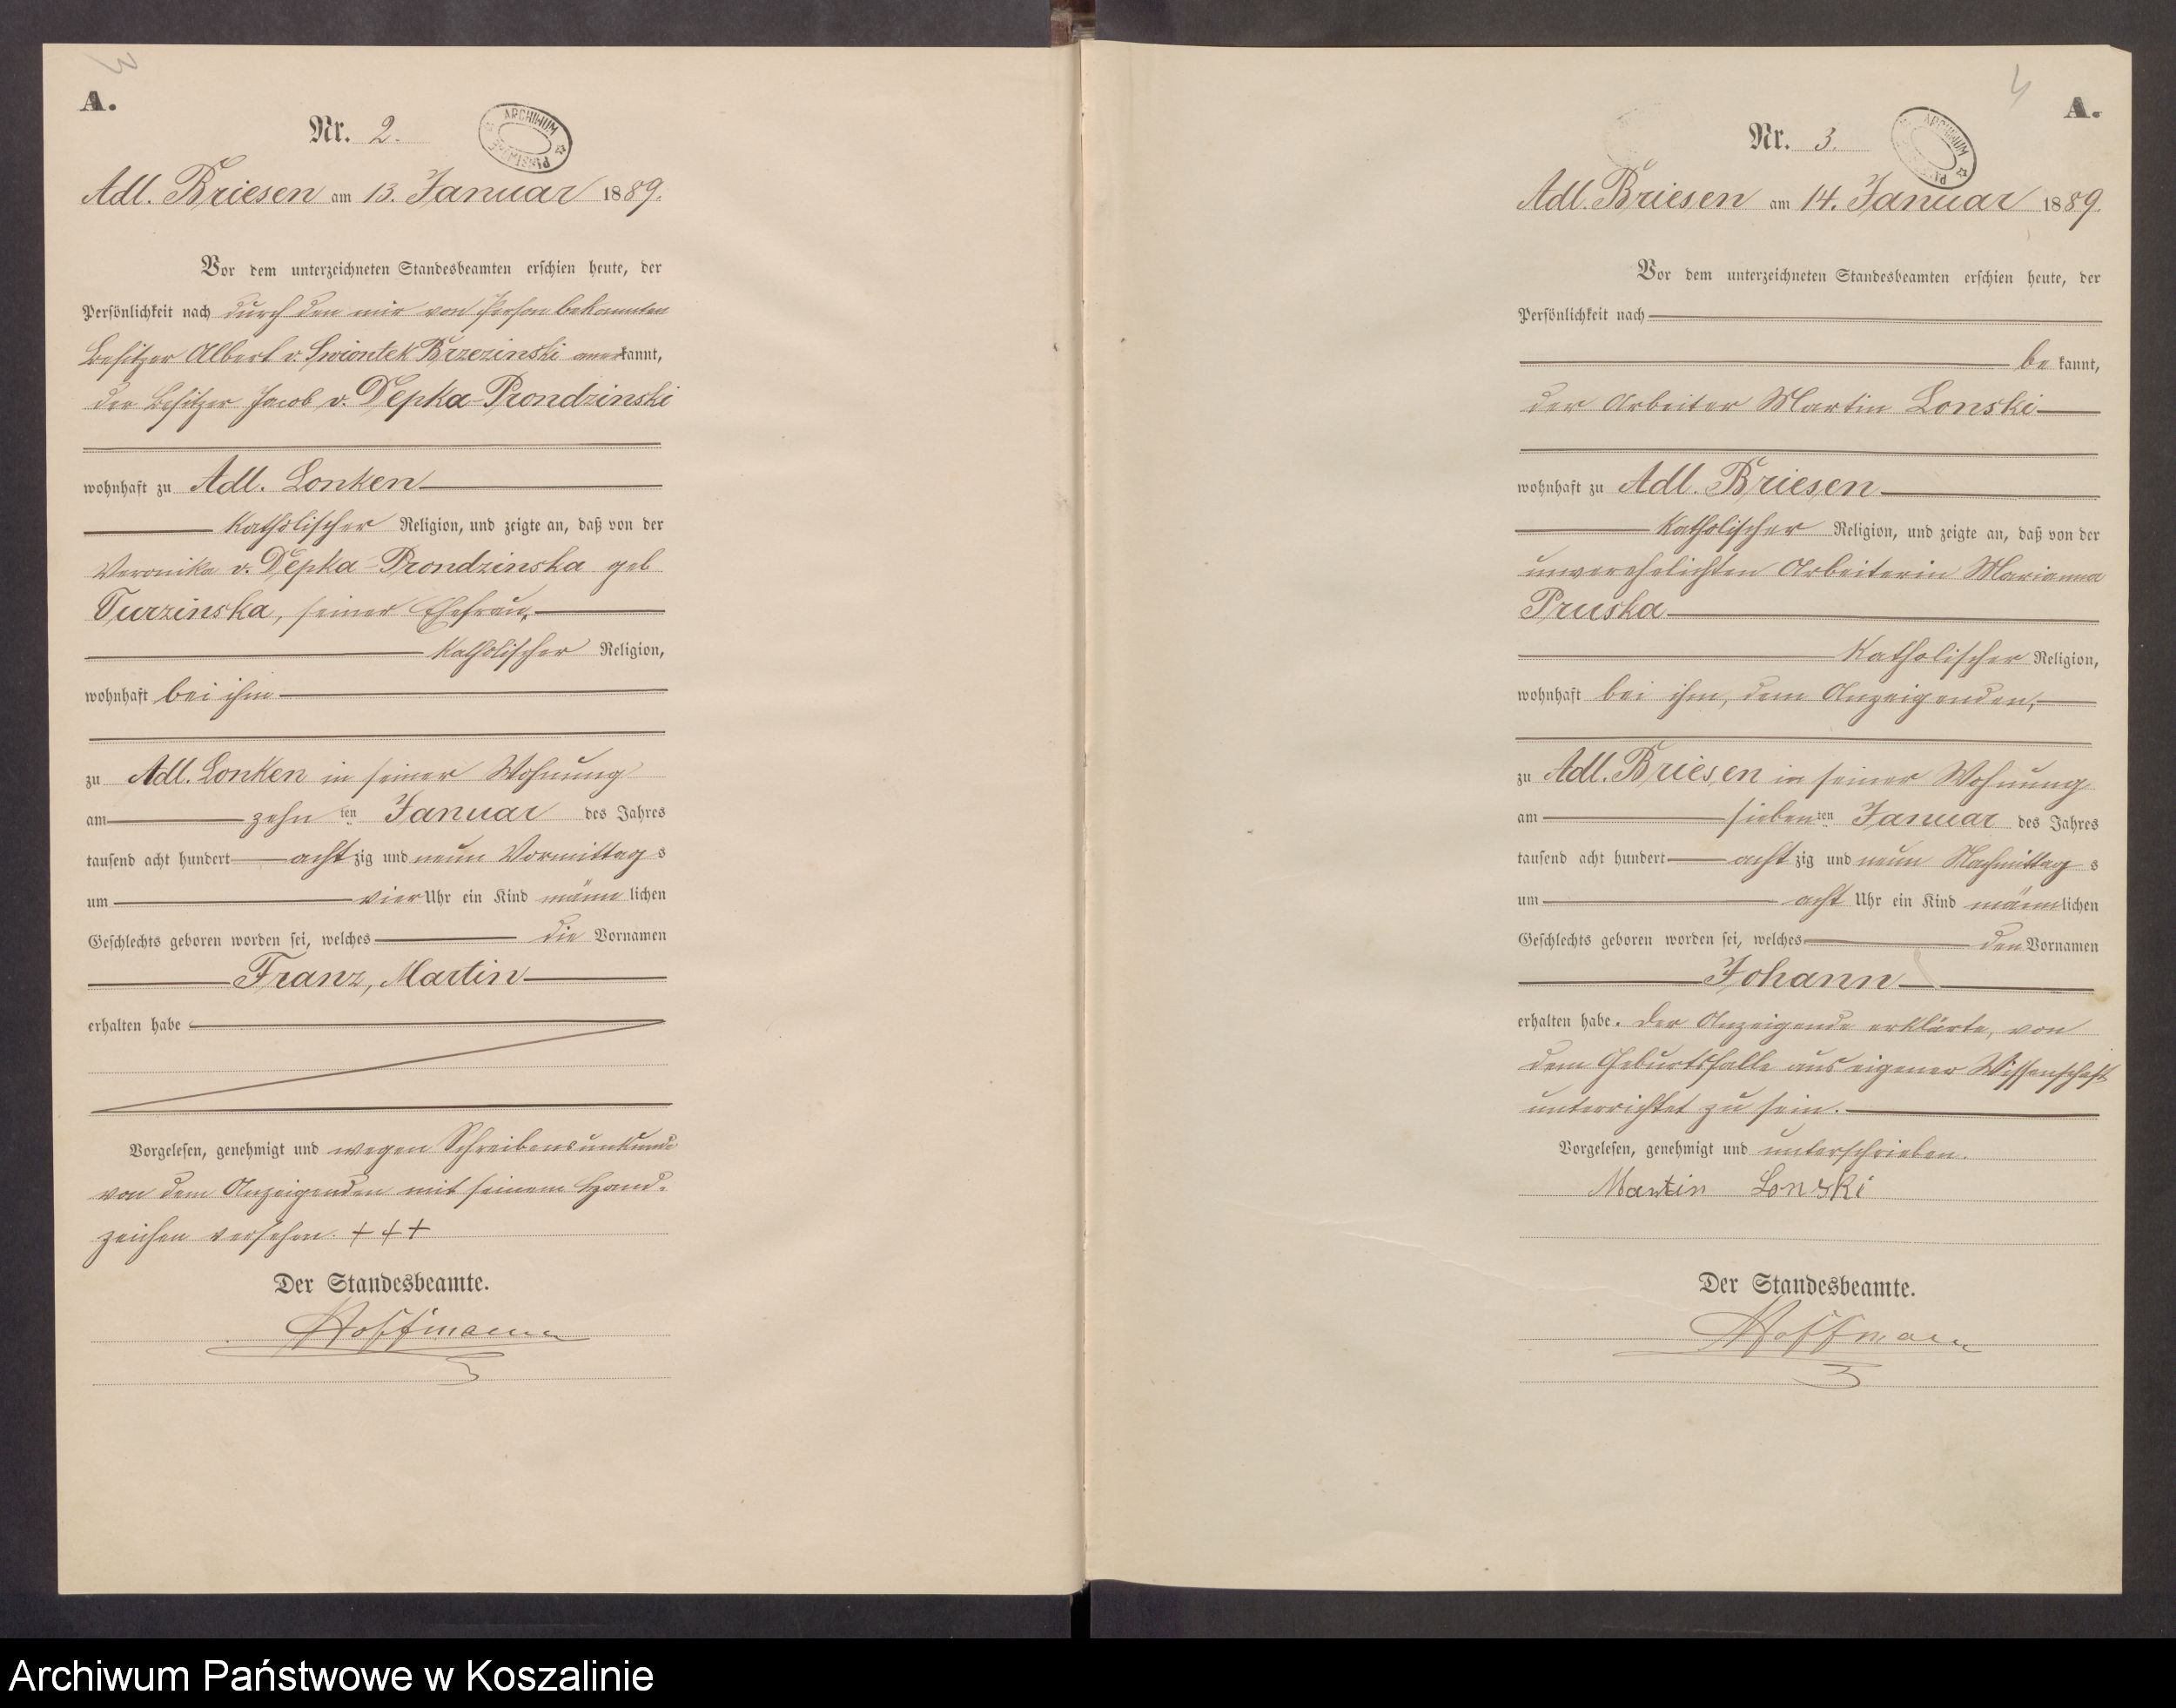 3
A.
Nr. 2.
ARCHIWUM PAŃSTWOWE
Adl. Briesen am 13. Januar 1889.
Vor dem unterzeichneten Standesbeamten erschien heute, der
Persönlichkeit nach durch den mir von Person bekannten
Besitzer Albert v. Swiontek Brzezinski anerkannt,
der Besitzer Jacob v. Depka-Prondzinski
wohnhaft zu Adl. Lonken
katholischer Religion, und zeigte an, daß von der
Veronika v. Depka-Prondzinska geb
Turzinska, seiner Ehefrau,
katholischer Religion,
wohnhaft bei ihm
zu Adl. Lonken in seiner Wohnung
am zehn ten Januar des Jahres
tausend acht hundert acht zig und neun Vormittag s
um vier Uhr ein Kind männ lichen
Geschlechts geboren worden sei, welches die Vornamen
Franz, Martin
erhalten habe
Vorgelesen, genehmigt und wegen Schreibensunkunde
von dem Anzeigenden mit seinem Hand-
zeichen versehen. +++
Der Standesbeamte.
Hoffmann
4
A.
Nr. 3.
ARCHIWUM
Adl. Briesen am 14. Januar 1889.
Vor dem unterzeichneten Standesbeamten erschien heute, der
Persönlichkeit nach
be kannt,
der Arbeiter Martin Lonski
wohnhaft zu Adl. Briesen
katholischer Religion, und zeigte an, daß von der
unverehelichten Arbeiterin Marianna
Pruska
katholischer Religion,
wohnhaft bei ihm, dem Anzeigenden,
zu Adl. Briesen in seiner Wohnung
am sieben ten Januar des Jahres
tausend acht hundert acht zig und neun Nachmittag s
um acht Uhr ein Kind männ lichen
Geschlechts geboren worden sei, welches den Vornamen
Johann
erhalten habe. Der Anzeigende erklärte, von
dem Geburtsfalle aus eigener Wissenschaft
unterrichtet zu sein.
Vorgelesen, genehmigt und unterschrieben.
Martin Lonski
Der Standesbeamte.
Hoffmann
Archiwum Państwowe w Koszalinie